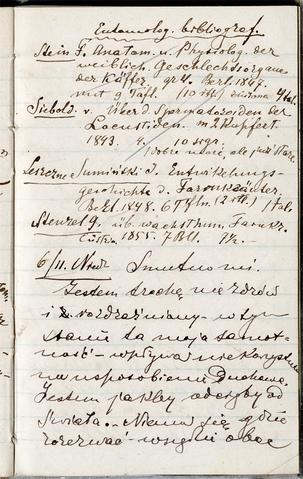 Entomolog. bibliograf.
Stein F. Anatom. u. Physiolog. der
weiblich. Geschlechtsorgane
der Käffer gr 4. Berl. 1847.
mit 9 Tafl. (10 rtlr)
Siebold v. Über d. Spermatozoiden der
Locustiden. m 2 Kupfert.
1843. 4. 10 sgr.
(dobre mieć, ale już stare
Leszczyc Sumiński d. Entwickelungs-
geschichte d. Farrnkräuter.
Berl 1848. 6 Tfln. 1 tal.
Stenzel G. üb. wachsthum Farnkr.
1855. 7 Bl.
6/11. Niedz Smutno mi.
Jestem trochę niezdrów
i rozdrażniony - w tym
stanie ta moja samot-
ność - wpływa niekorzystnie
na usposobienie Duchowe.
Jestem jakby odcięty od
świata. - Niema się gdzie
rozerwać - wszędzie obce